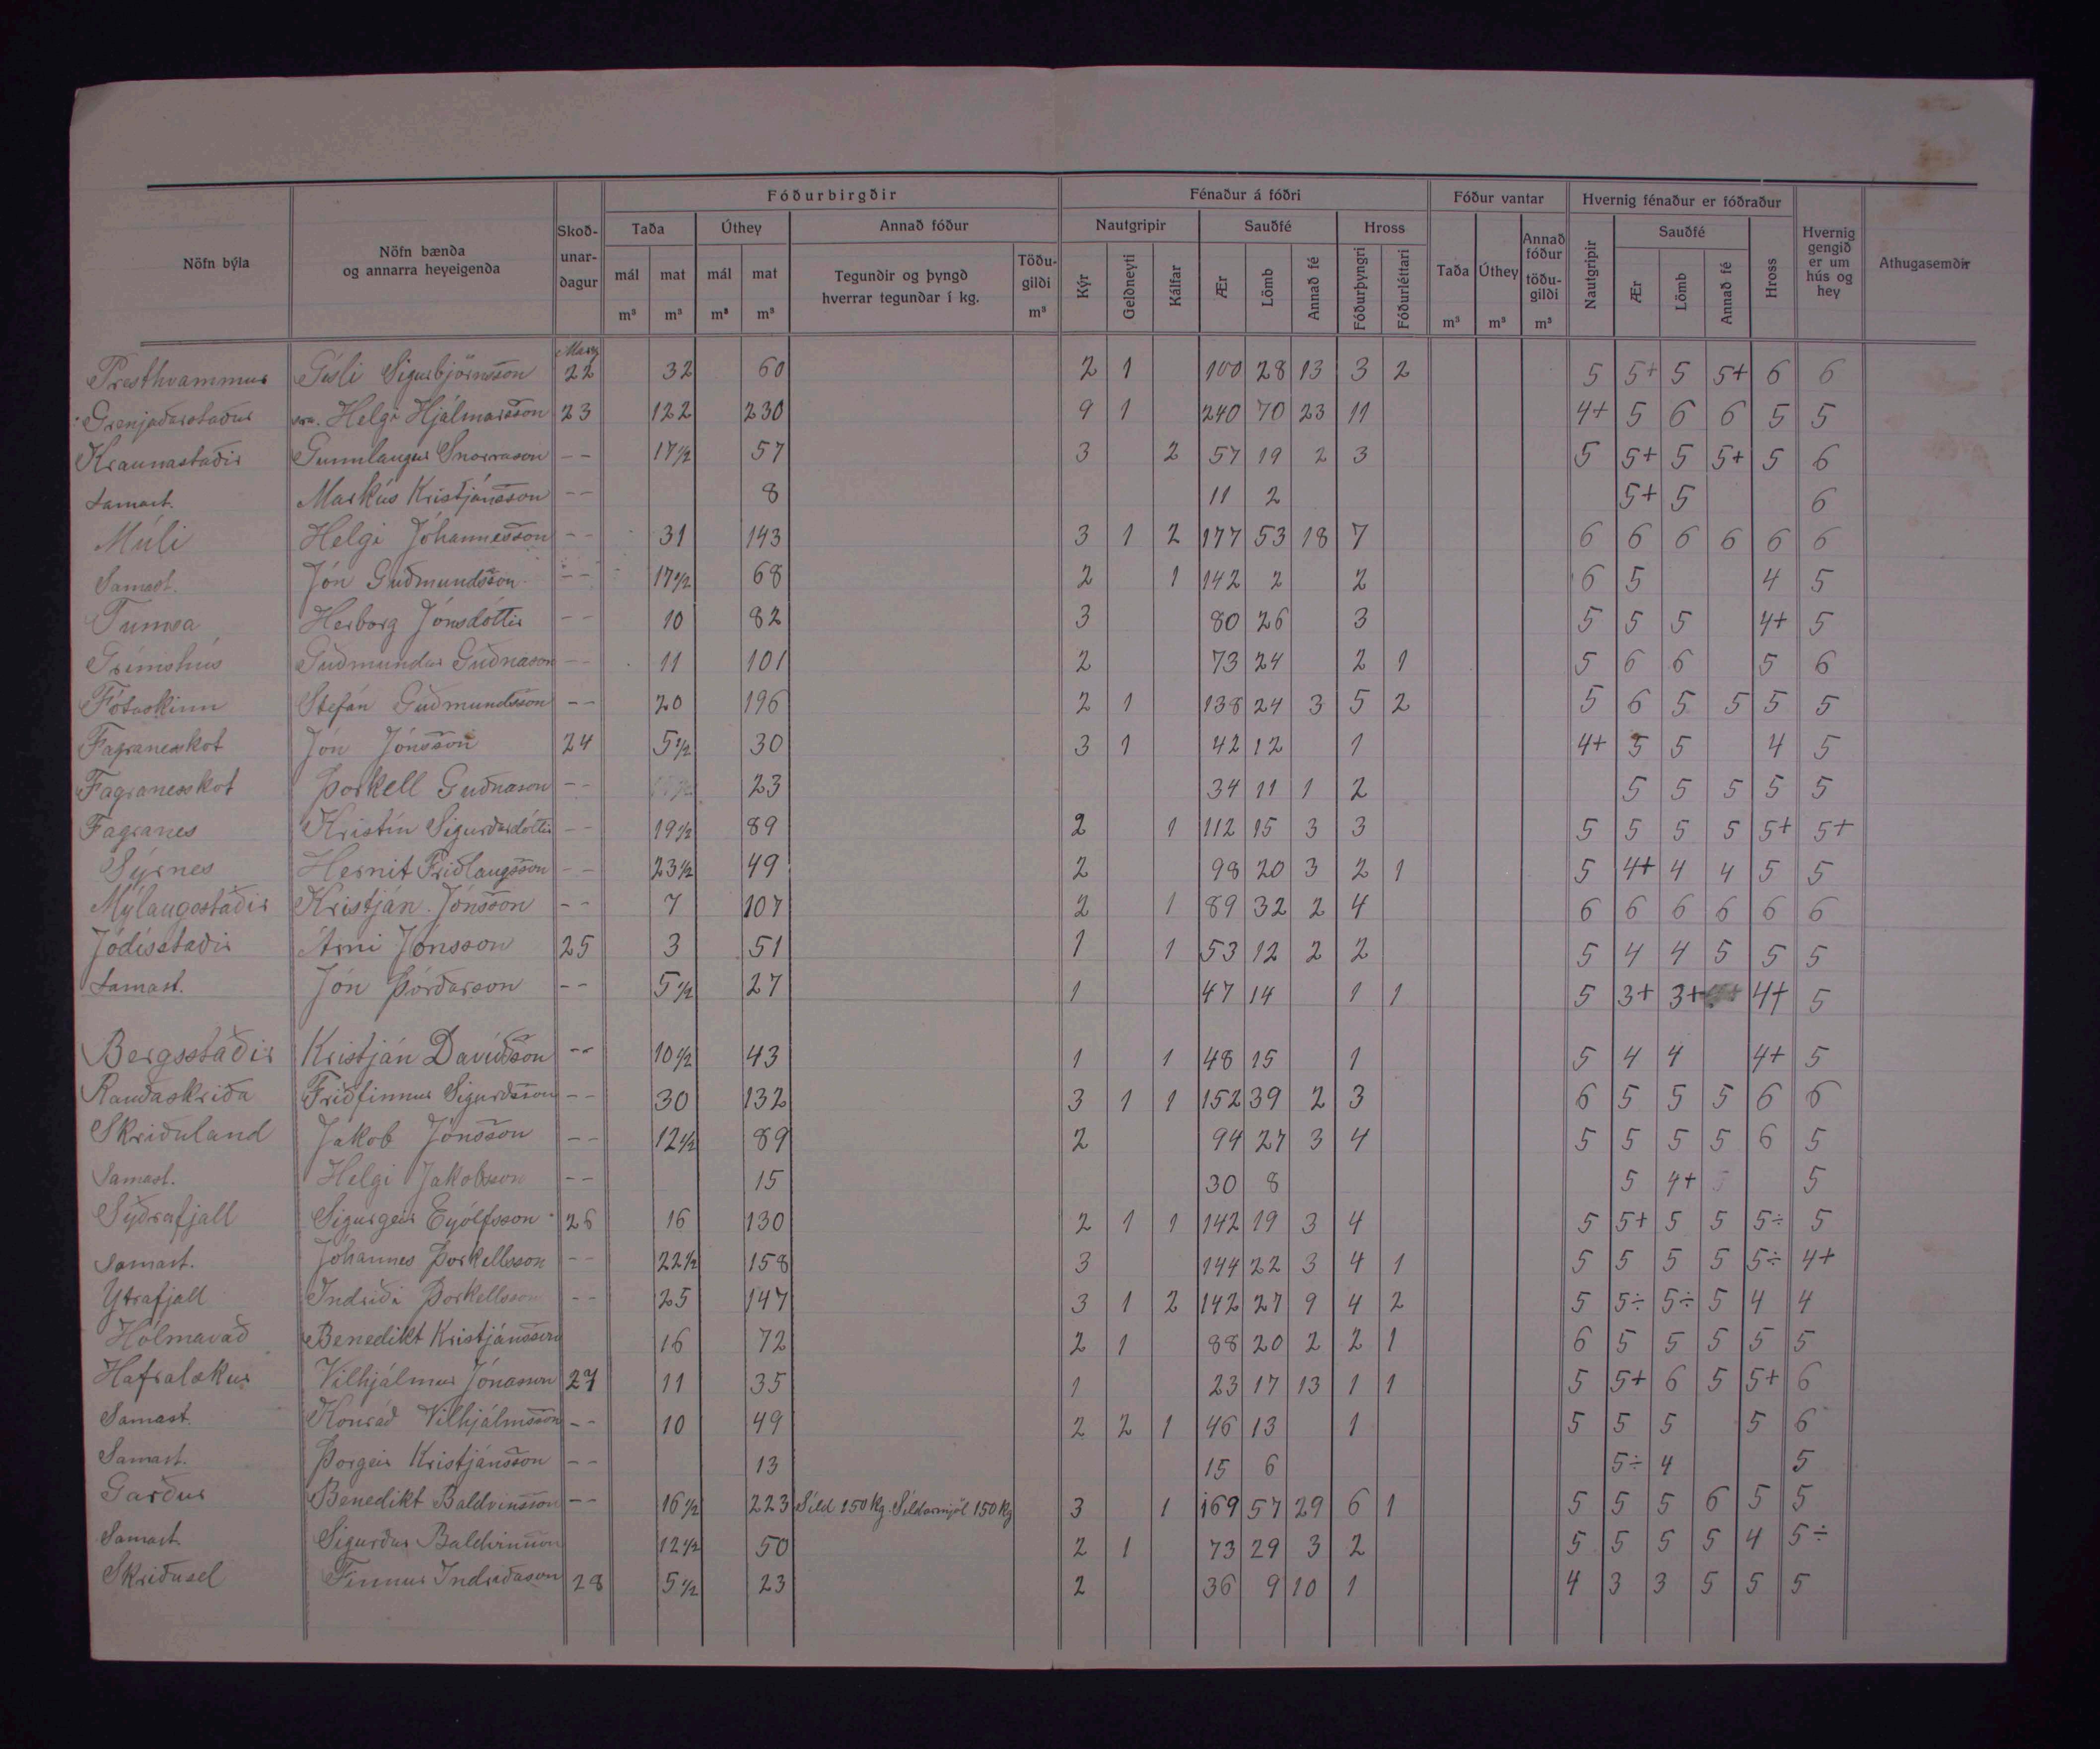 Fóðurbirgðir Fénaður á fóðri Fóður vantar Hvernig fénaður er fóðraður
Nöfn býla Nöfn bænda og annarra heyeigenda Skoð-unar-dagur Taða Úthey Annað fóður Nautgripir Sauðfé Hross Taða Úthey Annað fóður töðu-gildi Nautgripir Sauðfé Hross Hvernig gengið er um hús og hey Athugasemdir
mál mat mál mat Tegundir og þyngd hverrar tegundar í kg. Töðu-gildi Kýr Geldneyti Kálfar Ær Lömb Annað fé Fóðurþyngri Fóðurléttari Ær Lömb Annað fé
m³ m³ m³ m³ m³ m³ m³ m³
Marz
Presthvammur Gísli Sigurbjörnsson 22 32 60 2 1 100 28 13 3 2 5 5+ 5 5+ 6 6
Grenjaðarstaður sra. Helgi Hjálmarsson 23 122 230 9 1 240 70 23 11 4+ 5 6 6 5 5
Kraunastaðir Gunnlaugur Snorrason -- 17½ 57 3 2 57 19 2 3 5 5+ 5 5+ 5 6
Samast. Markús Kristjánsson -- 8 11 2 5+ 5 6
Múli Helgi Jóhannesson -- 31 143 3 1 2 177 53 18 7 6 6 6 6 6 6
Samast. Jón Guðmundsson -- 17½ 68 2 1 142 2 2 6 5 4 5
Tumsa Herborg Jónsdóttir -- 10 82 3 80 26 3 5 5 5 4+ 5
Grímshús Guðmundur Guðnason -- 11 101 2 73 24 2 1 5 6 6 5 6
Fótaskinn Stefán Guðmundsson -- 20 196 2 1 138 24 3 5 2 5 6 5 5 5 5
Fagranesskot Jón Jónsson 24 5½ 30 3 1 42 12 1 4+ 5 5 4 5
Fagranesskot Þorkell Guðnason -- 23 34 11 1 2 5 5 5 5 5
Fagranes Kristín Sigurðardóttir -- 19½ 89 2 1 112 15 3 3 5 5 5 5 5+ 5+
Sýrnes Hernit Friðlaugsson -- 23½ 49 2 98 20 3 2 1 5 4+ 4 4 5 5
Mýlaugsstaðir Kristján Jónsson -- 7 107 2 1 89 32 2 4 6 6 6 6 6 6
Jódísstaðir Árni Jónsson 25 3 51 1 1 53 12 2 2 5 4 4 5 5 5
Samast. Jón Þórðarson -- 5½ 27 1 47 14 1 1 5 3+ 3+ 4+ 5
Bergsstaðir Kristján Davíðsson -- 10½ 43 1 1 48 15 1 5 4 4 4+ 5
Rauðaskriða Friðfinnur Sigurðsson -- 30 132 3 1 1 152 39 2 3 6 5 5 5 6 6
Skriðuland Jakob Jónsson -- 12½ 89 2 94 27 3 4 5 5 5 5 6 5
Samast. Helgi Jakobsson -- 15 30 8 5 4+ 5
Syðrafjall Sigurgeir Eyólfsson 26 16 130 2 1 1 142 19 3 4 5 5+ 5 5 5÷ 5
Samast. Jóhannes Þorkellsson -- 22½ 158 3 144 22 3 4 1 5 5 5 5 5÷ 4+
Ytrafjall Indriði Þorkellsson -- 25 147 3 1 2 142 27 9 4 2 5 5÷ 5÷ 5 4 4
Hólmavað Benedikt Kristjánsson 16 72 2 1 88 20 2 2 1 6 5 5 5 5 5
Hafralækur Vilhjálmur Jónasson 27 11 35 1 23 17 13 1 1 5 5+ 6 5 5+ 6
Samast. Konráð Vilhjálmsson -- 10 49 2 2 1 46 13 1 5 5 5 5 6
Samast. Þorgeir Kristjánsson -- 13 15 6 5÷ 4 5
Garður Benedikt Baldvinsson -- 16½ 223 Síld 150 kg. Síldarmjöl 150 kg 3 1 169 57 29 6 1 5 5 5 6 5 5
Samast. Sigurður Baldvinsson 12½ 50 2 1 73 29 3 2 5 5 5 5 4 5÷
Skriðusel Finnur Indriðason 28 5½ 23 2 36 9 10 1 4 3 3 5 5 5